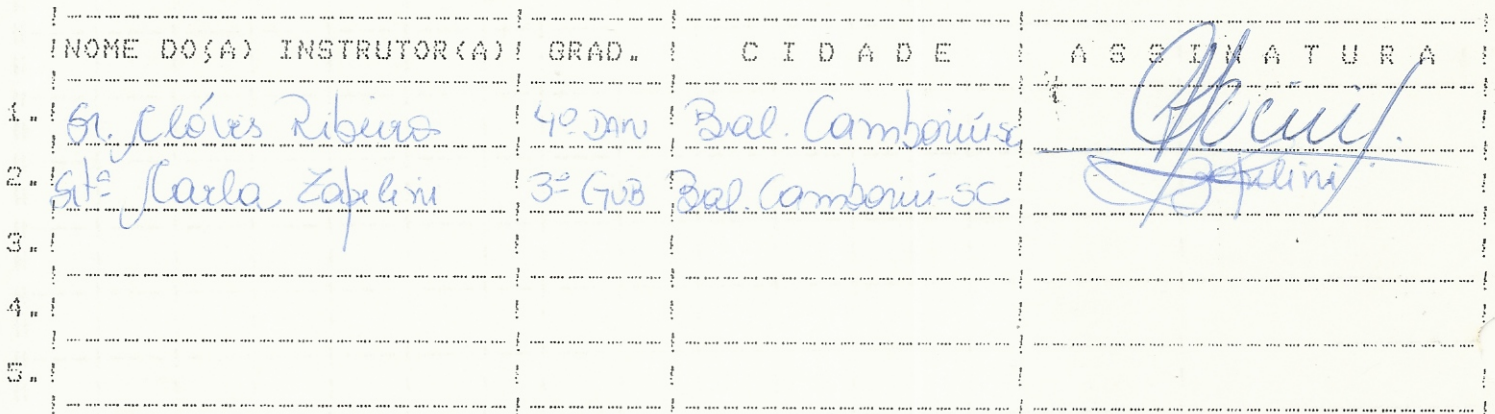 NOME DO(A) INSTRUTOR(A) GRAD. CIDADE ASSINATURA
1. Sr. Clóvis Ribeiro 4º DAN Bal. Camboriú-sc
2. Srtª Carla Zapelini 3º GUB Bal. Camboriú-SC Zapelini
3.
4.
5.